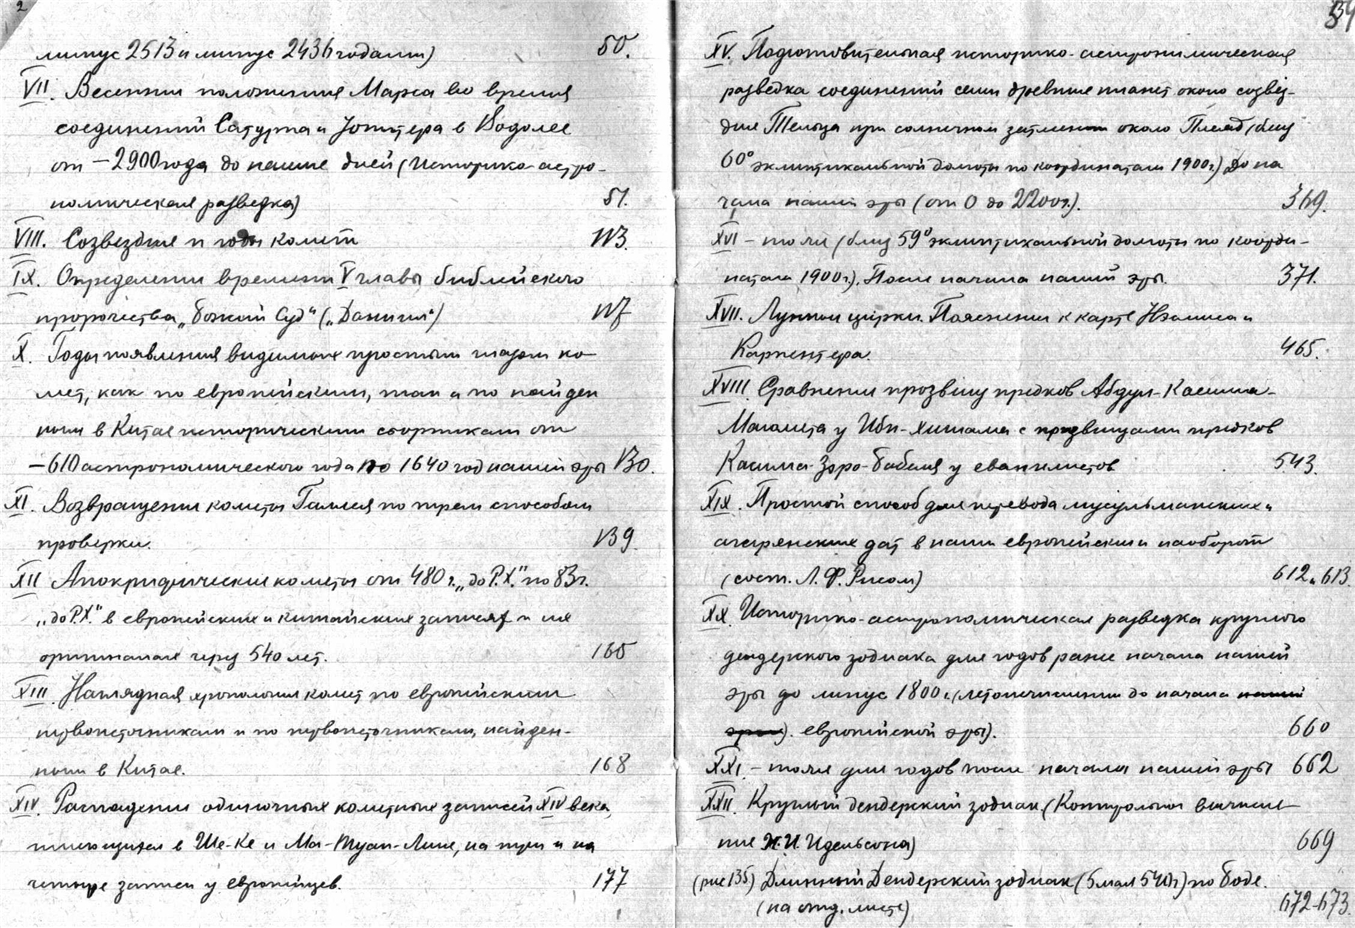 2
минус 2513 и минус 2436 годами) 50.
VII. Весенние положения Марса во время
соединений Сатурна и Юпитера в Водолее
от −2900 года до наших дней (Историко-астро-
номическая разведка) 51.
VIII. Созвездия и годы комет 113.
IX. Определение времени V главы библейского
пророчества „Божий Суд“ („Даниил“) 117
X. Годы появления видимых простым глазом ко-
мет, как по европейским, так и по найден
ным в Китае историческим сборникам от
−610 астрономического года по 1640 год нашей эры 130.
XI. Возвращения кометы Галлея по трем способам
проверки. 139
XII Апокрифические кометы от 480 г. „до Р.Х.“ по 83 г.
„до Р.Х.“ в европейских и китайских записях и их
оригиналах через 540 лет. 165
XIII. Наглядная хронология комет по европейским
первоисточникам и по первоисточникам, найден-
ным в Китае. 168
XIV. Распадение одиночных кометных записей XIV века,
имеющихся в Ше-Ке и Ма-Туан-Лине, на три и на
четыре записи у европейцев. 177
XV. Подготовительная историко-астрономическая
разведка соединений семи древних планет около созвез-
дия Тельца при солнечном затмении около Плеяд (близ
60° эклиптикальной долготы по координатам 1900 г.) до на
чала нашей эры (от 0 до 2200 г.). 369.
XVI – тоже (близ 59° эклиптикальной долготы по коорди-
натам 1900 г.). После начала нашей эры. 371.
XVII. Лунные цирки. Пояснения к карте Нэсмиса и
Карпентера. 465.
XVIII. Сравнение прозвищ предков Абдул-Касима-
Магомета у Ибн-Хишама с прозвищами предков
Касима-Зоро-Бабеля у евангелистов 543.
XIX. Простой способ для перевода мусульманских и
агарянских дат в наши европейские и наоборот
(сост. Л. Ф. Рисом) 612 и 613.
XX. Историко-астрономическая разведка круглого
дендерского зодиака для годов ранее начала нашей
эры до минус 1800 г. (летоисчислении до начала нашей
эры). европейской эры). 660
XXI – тоже для годов после начала нашей эры 662
XXII. Круглый дендерский зодиак (Контрольное вычисле-
ние Н. И. Идельсона) 669
(рис 135) Длинный Дендерский зодиак (5 мая 540 г.) по Боде.
(на отд. листе) 672-673.